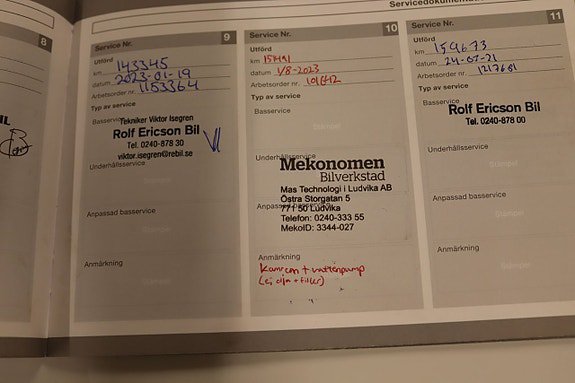 Servicedokumentation
8
Service Nr. 9
Utförd
km 143345
datum 2023-01-19
Arbetsorder nr. 1153364
Typ av service
Basservice
Tekniker Viktor Isegren
Rolf Ericson Bil
Tel. 0240-878 30
viktor.isegren@rebil.se
Stämpel
Underhållsservice
Stämpel
Anpassad basservice
Stämpel
Anmärkning
Stämpel
Service Nr. 10
Utförd
km
datum 1/8-2023
Arbetsorder nr.
Typ av service
Basservice
Stämpel
Underhållsservice
Mekonomen
Bilverkstad
Mas Technologi i Ludvika AB
Östra Storgatan 5
Anpassad basservice
771 50 Ludvika
Telefon: 0240-333 55
MekoID: 3344-027
Anmärkning
Kamrem + vattenpump
(ej olja + filter)
Service Nr. 11
Utförd
km 159673
datum 24-07-21
Arbetsorder nr. 1217681
Typ av service
Basservice
Rolf Ericson Bil
Tel. 0240-878 00
Underhållsservice
Stämpel
Anpassad basservice
Stämpel
Anmärkning
Stämpel